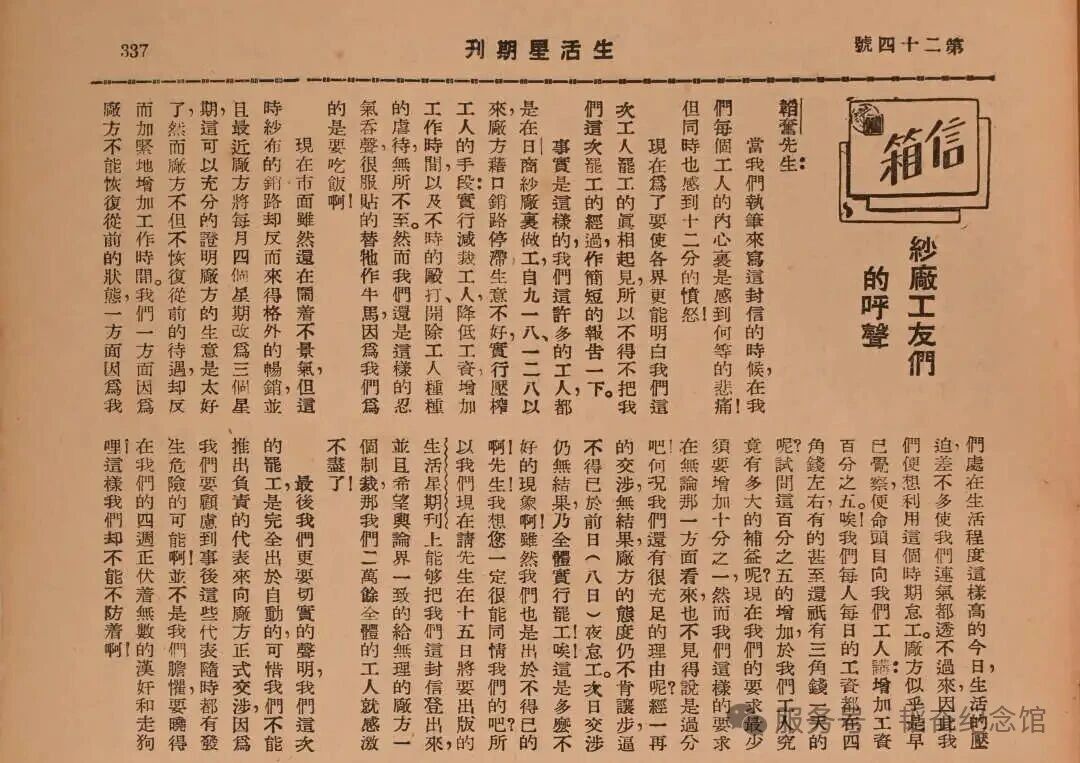 第二十四號
生活星期刊
337
信箱
紗廠工友們
的呼聲
韜奮先生：
當我們執筆來寫這封信的時候，在我
們每個工人的內心裏是感到何等的悲痛！
但同時也感到十二分的憤怒！
現在爲了要使各界更能明白我們這
次工人罷工的眞相起見，所以不得不把我
們這次罷工的經過，作簡短的報告一下。
事實是這樣的，我們這許多的工人，都
是在日商紗廠裏做工，自九一八，一二八以
來，廠方藉口銷路停滯，生意不好，實行壓榨
工人的手段：實行減裁工人，降低工資，增加
工作時間，以及不時的毆打、開除工人，種種
的虐待，無所不至。然而我們還是這樣的忍
氣吞聲，很服貼的替牠作牛馬，因爲我們爲
的是要吃飯啊！
現在市面雖然還在鬧着不景氣，但這
時紗布的銷路却反而來得格外的暢銷，並
且最近廠方將每月四個星期改爲三個星
期，這可以充分的證明廠方的生意是太好
了，然而廠方不但不恢復從前的待遇，却反
而加緊地增加工作時間。我們一方面因爲
廠方不能恢復從前的狀態，一方面因爲我
們處在生活程度這樣高的今日，生活的壓
迫，差不多使我們連氣都透不過來，因此我
們便想利用這個時期怠工。廠方似乎是早
已覺察，便命頭目向我們工人講：增加工資
百分之五。唉！我們每人每日的工資都在四
角錢左右，有的甚至還祇有三角錢一天的
呢？試問這百分之五的增加，於我們工人究
竟有多大的補益呢？現在我們的要求最少
須要增加十分之一，然而我們這樣的要求
在無論那一方面看來，也不見得說是過分
吧！何況我們還有很充足的理由呢？經一再
的交涉無結果，廠方的態度仍不肯讓步，逼
不得已於前日（八日）夜怠工。次日交涉
仍無結果，乃全體實行罷工！唉這是多麽不
好的現象啊！雖然我們也是出於不得已的
啊！先生！我想您一定很能同情我們的吧！所
以我們現在請先生在十五日將要出版的
生活星期刊上能够把我們這封信登出來，
並且希望輿論界一致的給無理的廠方一
個制裁，那我們二萬餘全體的工人就感激
不盡了！
最後我們更要切實的聲明，我們這次
的罷工，是完全出於自動的，可惜我們不能
推出負責的代表來向廠方正式交涉，因爲
我們要顧慮到事後這些代表隨時都有發
生危險的可能啊！並不是我們膽懼，要曉得
在我們的四週正伏着無數的漢奸和走狗
哩！這樣我們却不能不防着啊！
服务号
韬奋纪念馆